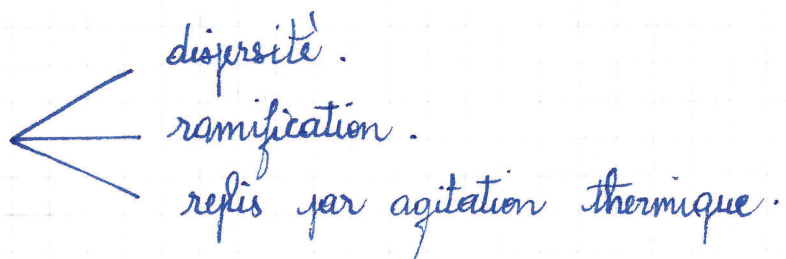 dispersité.
ramification.
replis par agitation thermique.